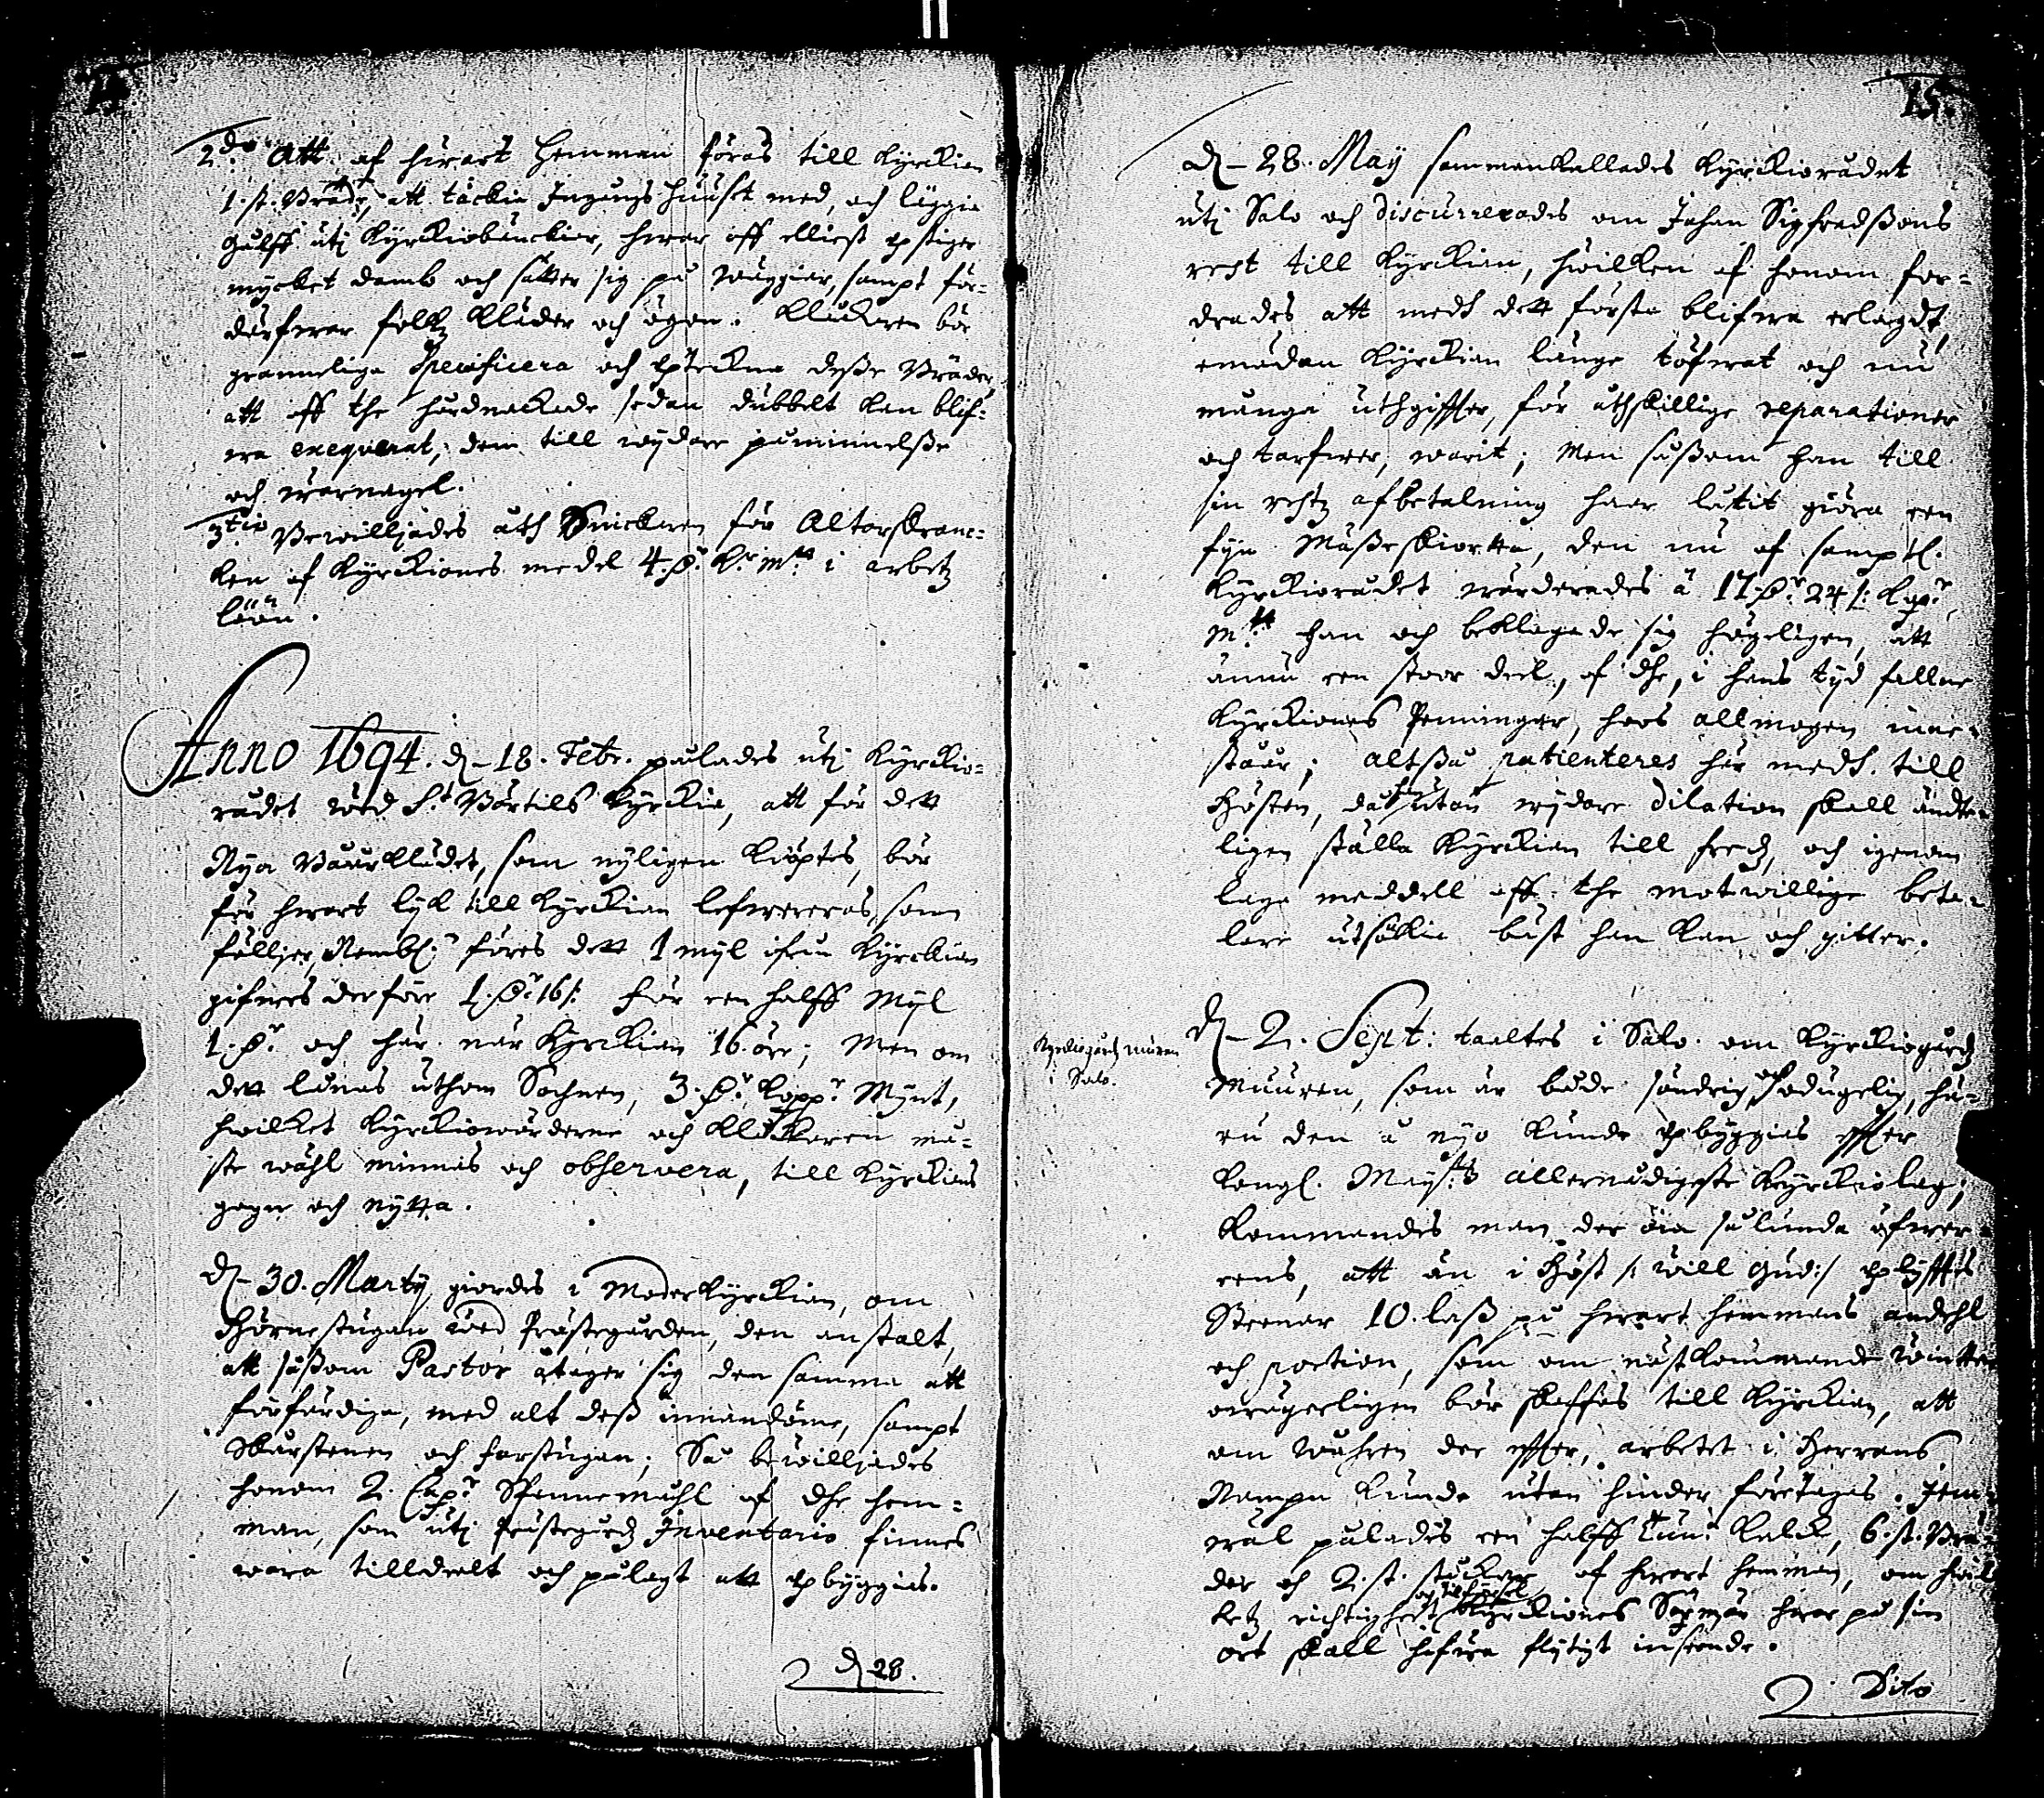 14.
2do Att af hwart Hemman föras till Kyrckian
1. st. Bräde, att täckia Ingångs Huuset med, och läggia
Gulff uti Kyrckiobänckier, hwar aff elliest upstiger
mycket damb och sätter sig på wäggiar, sampt för-
därfwar folkz kläder och ögon. Klåckaren bör
granneliga Specificera och uptekna desse Bräder,
att aff the hårdnackade sedan dubbelt kan blif-
wa exequerat, dem till wijdare påminnelsse
och warnagel.
3tio Bewilljades åth Snickaren för Altarskranc-
ken af Kyrckiones medel 4. Dr. K:r m:tt i arbetz
löön.
Anno 1694. d. 18. Febr. pålades uti Kyrckio-
rådet wed S:t Bertils Kyrckia, att för dett
Nya Båårklädet, som nyligen kiöptes, bör
för hwart lijk till Kyrckian lefwereras, som
fölljer, Nembl: föres dett 1 mijl ifrån Kyrckian
gifwes derföre 1. Dr 16 /: för een halff Mijl
1. Dr och här när Kyrckian 16. öre; Men om
dett lånas uthom Sochnen, 3. Dr. Kopp:r Mynt,
hwilket Kyrckiowärderne och Klåckaren må-
ste wähl minnas och observera, till Kyrckians
gagn och nytta.
d. 30. Martij giordes i Moderkyrckian, om
Hörnestugan wed Prästegården, den anstalt,
att såssom Pastor åtager sig den samma att
förfärdiga, med alt dess innandöme, sampt
Skårstenen och farstugan; Så bewilljades
honom 2. Cap:r Spannemåhl af dhe hem-
man, som uti Prästegårdz Inventario finnes
wara tilldeelt och pålagt att upbyggias.
d. 28.
15.
d. 28. Maij sammankallades Kyrckiorådet
uti Salo och discurrerades om Johan Sigfredssons
rest till Kyrckian, hwilken af honom for-
drades att medh dett första blifwa erlagdt,
emädan Kyrckian länge töfwat och nu
många uthgiffter, för åthskillige reparationer
och tarfwer, warit; Men såssom han till
sin restz afbetalning haar låtit giöra een
fijn Mässeskiorta, den nu af samptl.
Kyrckiorådet wärderades à 17. Dr. 24 /: Kop:r
m:tt Han och beklagade sig högeligen, att
ännu een stoor deel, af dhe, i hans tijd fallne
Kyrckiones Penningar, hoos allmogen inne-
stååer; altsså patienteres här medh till
Hösten, då han utan wijdare dilation skall ändte-
ligen ställa Kyrckian till fredz, och igenom
laga meddell aff the motwillige beta-
lare utsökia bäst han kan och gitter.
Kyrkiogårdz muren
i Salo.
d. 2. Sept: taaltes i Salo om Kyrckiogårdz
Muuren, som är både söndrig och odugelig, hu-
ru den å nyo kunde upbyggias effter
Kongl. Maij:tts allernådigste Kyrckiolag;
kommandes man der öia sålunda öfwer-
eens, att än i Höst /: will Gud :/ uplyfftes
Steenar 10. lass på hwart hemmans andehl
och portion, som om nästkommande Winter
owägerligen bör skaffas till Kyrckian, att
om Wåhren der effter, arbetet i Herrans
Nampn kunde utan hinder företagas. Jem-
wäl pålades een halff tun: Kalck, 6. st. Brä-
der och 2. st. stockar af hwart hemman, om hwil-
ketz richtighet och införsel Kyrckiones Sexmän hwar på sin
ort skall hafwa flijtigt inseende.
Dito